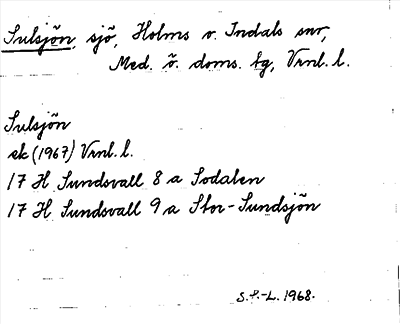 Sulsjön, sjö, Holms o. Indals snr,
Med. ö. doms. tg, Vrnl. l.
Sulsjön
ek (1967) Vrnl. l.
17 H Sundsvall 8 a Sodalen
17 H Sundsvall 9 a Stor-Sundsjön
S.F.-L. 1968.